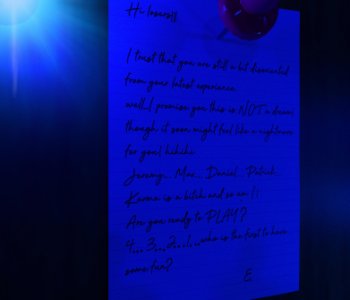 Hi
I trust that you are still a bit disoriented
from your latest experience.
well..I promise you this is NOT a dream
though it soon might feel like a nightmare
for you! hihihi
Jeremy... Max... Daniel... Patrick
Karma is a bitch and so am I!.
Am you ready to PLAY?
4... 3... 2... 1... who is the first to have
some fun?
E.